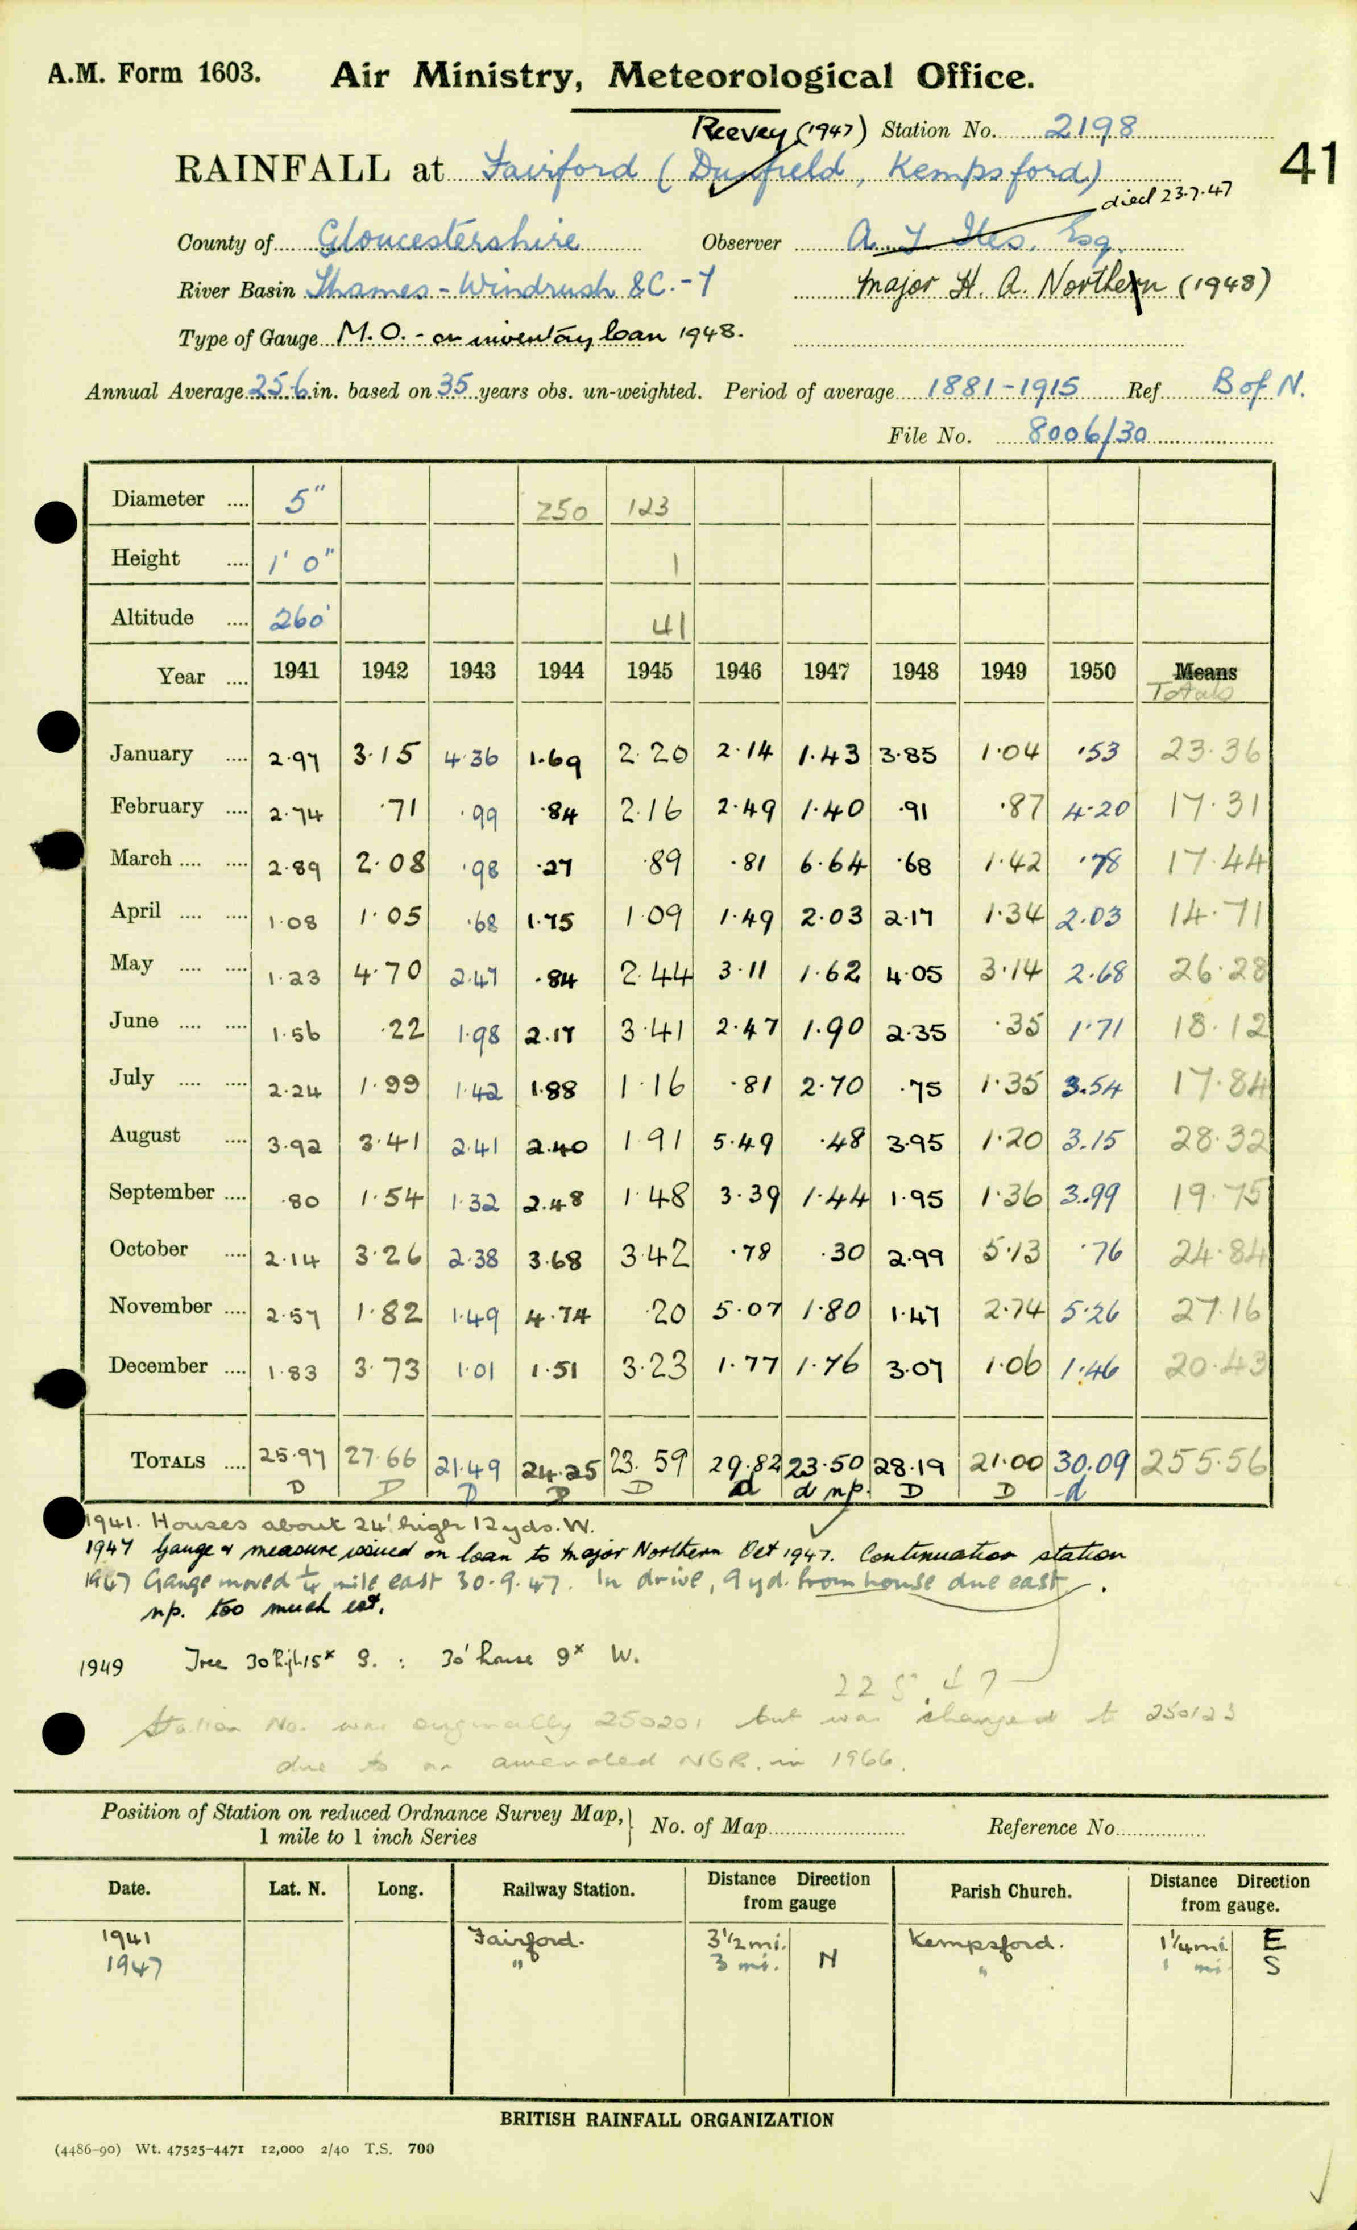 A.M. Form 1603. Air Ministry, Meteorological Office.
Reevey (1947) Station No. 2198
41
RAINFALL at Fairford (Dunfield, Kempsford)
died 23.7.47
County of Gloucestershire Observer A. J. Iles, Esq.
River Basin Thames - Windrush &C. - 7 Major H. A. Northen (1948)
Type of Gauge M.O. - on inventory loan 1948.
Annual Average 25.6 in. based on 35 years obs. un-weighted. Period of average 1881-1915 Ref B of N.
File No. 8006/30
Diameter .... 5" 250 123
Height .... 1' 0" 1
Altitude .... 260' 41
Year .... 1941 1942 1943 1944 1945 1946 1947 1948 1949 1950 Means
Totals
January .... 2.97 3.15 4.36 1.69 2.20 2.14 1.43 3.85 1.04 .53 23.36
February .... 2.74 .71 .99 .84 2.16 2.49 1.40 .91 .87 4.20 17.31
March .... .... 2.89 2.08 .98 .27 .89 .81 6.64 .68 1.42 .78 17.44
April .... .... 1.08 1.05 .68 1.75 1.09 1.49 2.03 2.17 1.34 2.03 14.71
May .... .... 1.23 4.70 2.47 .84 2.44 3.11 1.62 4.05 3.14 2.68 26.28
June .... .... 1.56 .22 1.98 2.17 3.41 2.47 1.90 2.35 .35 1.71 18.12
July .... .... 2.24 1.99 1.42 1.88 1.16 .81 2.70 .75 1.35 3.54 17.84
August .... 3.92 3.41 2.41 2.40 1.91 5.49 .48 3.95 1.20 3.15 28.32
September .... .80 1.54 1.32 2.48 1.48 3.39 1.44 1.95 1.36 3.99 19.75
October .... 2.14 3.26 2.38 3.68 3.42 .78 .30 2.99 5.13 .76 24.84
November .... 2.57 1.82 1.49 4.74 .20 5.07 1.80 1.47 2.74 5.26 27.16
December .... 1.83 3.73 1.01 1.51 3.23 1.77 1.76 3.07 1.06 1.46 20.43
TOTALS .... 25.97 27.66 21.49 24.25 23.59 29.82 23.50 28.19 21.00 30.09 255.56
D D D D D d d np. D D d
1941. Houses about 24' high 12 yds. W.
1947 Gauge & measure issued on loan to Major Northern Oct 1947. Continuation station
1947 Gauge moved ¼ mile east 30.9.47. In drive, 9 yd. from house due east.
np. too much est.
1949 Tree 30' high 15x S. : 30' house 9x W.
Station No. was originally 250201 but was changed to 250123
due to an amended NGR. in 1966.
Position of Station on reduced Ordnance Survey Map, 1 mile to 1 inch Series } No. of Map Reference No.
Date. Lat. N. Long. Railway Station. Distance Direction from gauge Parish Church. Distance Direction from gauge.
1941 Fairford. 3½ mi. Kempsford. 1¼ mi. E
1947 " 3 mi. N " 1 mi. S
BRITISH RAINFALL ORGANIZATION
(4486-90) Wt. 47525-4471 12,000 2/40 T.S. 700